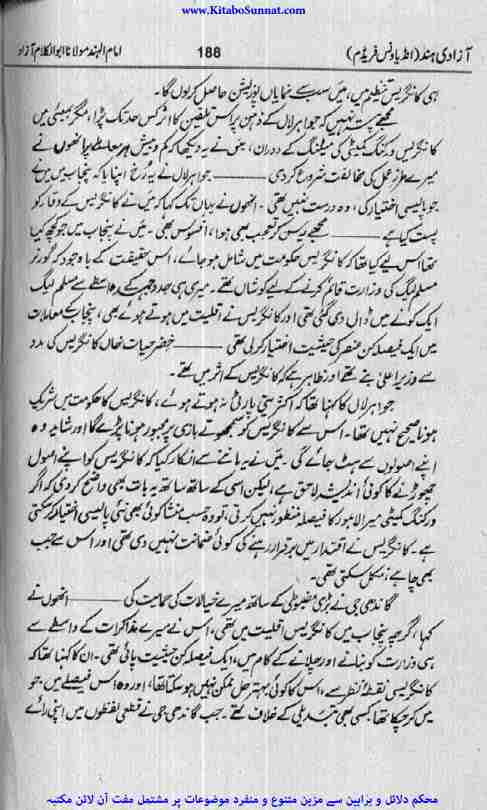 www.KitaboSunnat.com
آزادی ہند (انڈیا ونس فریڈم) 188 امام الہند مولانا ابوالکلام آزاد
ہی کانگریس تنظیم میں، میں سب سے نمایاں پوزیشن حاصل کر لوں گا۔
مجھے پتہ نہیں کہ جواہر لال کے ذہن پر اس تلقین کا اثر کس حد تک پڑا، مگر بمبئی میں
کانگریس ورکنگ کمیٹی کی میٹنگ کے دوران، میں نے یہ دیکھا کہ کم و بیش ہر معاملے پر انھوں نے
میرے طرزِ عمل کی مخالفت شروع کر دی ——— جواہر لال نے یہ رُخ اپنایا کہ پنجاب میں میں نے
جو پالیسی اختیار کی، وہ درست نہیں تھی۔ انھوں نے یہاں تک کہا کہ میں نے کانگریس کے وقار کو
پست کیا ہے ——— مجھے یہ سن کر تعجب بھی ہوا، افسوس بھی۔ میں نے پنجاب میں جو کچھ کیا
تھا اس لیے کیا تھا کہ کانگریس حکومت میں شامل ہو جائے، اس حقیقت کے باوجود کہ گورنر
مسلم لیگ کی وزارت قائم کرنے کے لیے کوشاں تھے۔ میری ہی جدوجہد کے واسطے سے مسلم لیگ
ایک کونے میں ڈال دی گئی تھی اور کانگریس نے اقلیت میں ہوتے ہوئے بھی، پنجاب کے معاملات
میں ایک فیصلہ کن عنصر کی حیثیت اختیار کر لی تھی ——— خضر حیات خاں کانگریس کی مدد
سے وزیر اعلیٰ بنے تھے اور ظاہر ہے کہ کانگریس کے اثر میں تھے۔
جواہر لال کا کہنا تھا کہ اکثریتی پارٹی نہ ہوتے ہوئے، کانگریس کا حکومت میں شریک
ہونا صحیح نہیں تھا۔ اس سے کانگریس کو سمجھوتے بازی پر مجبور ہونا پڑے گا اور شاید وہ
اپنے اصولوں سے ہٹ جائے گی۔ میں نے یہ ماننے سے انکار کیا کہ کانگریس کو اپنے اصول
چھوڑنے کا کوئی اندیشہ لاحق ہے، لیکن اسی کے ساتھ ساتھ یہ بات بھی واضح کر دی کہ اگر
ورکنگ کمیٹی میرا لاہور کا فیصلہ منظور نہیں کرتی، تو وہ حسب منشا کوئی بھی نئی پالیسی اختیار کر سکتی
ہے۔ کانگریس نے اقتدار میں برقرار رہنے کی کوئی ضمانت نہیں دی تھی اور اس سے جب
بھی چاہے، نکل سکتی تھی۔
گاندھی جی نے بڑی مضبوطی کے ساتھ میرے خیالات کی حمایت کی ——— انھوں نے
کہا، اگرچہ پنجاب میں کانگریس اقلیت میں تھی، اس نے میرے مذاکرات کے واسطے سے
ہی وزارت کو بنانے اور چلانے کے کام میں، ایک فیصلہ کن حیثیت پائی تھی۔ ان کا کہنا تھا کہ
کانگریسی نقطۂ نظر سے، اس کا کوئی بہتر حل ممکن نہیں ہو سکتا تھا، اور وہ اس فیصلے میں، جو
میں کر چکا تھا کسی بھی تبدیلی کے خلاف تھے۔ جب گاندھی جی نے قطعی لفظوں میں اپنی رائے
محکم دلائل و براہین سے مزین متنوع و منفرد موضوعات پر مشتمل مفت آن لائن مکتبہ